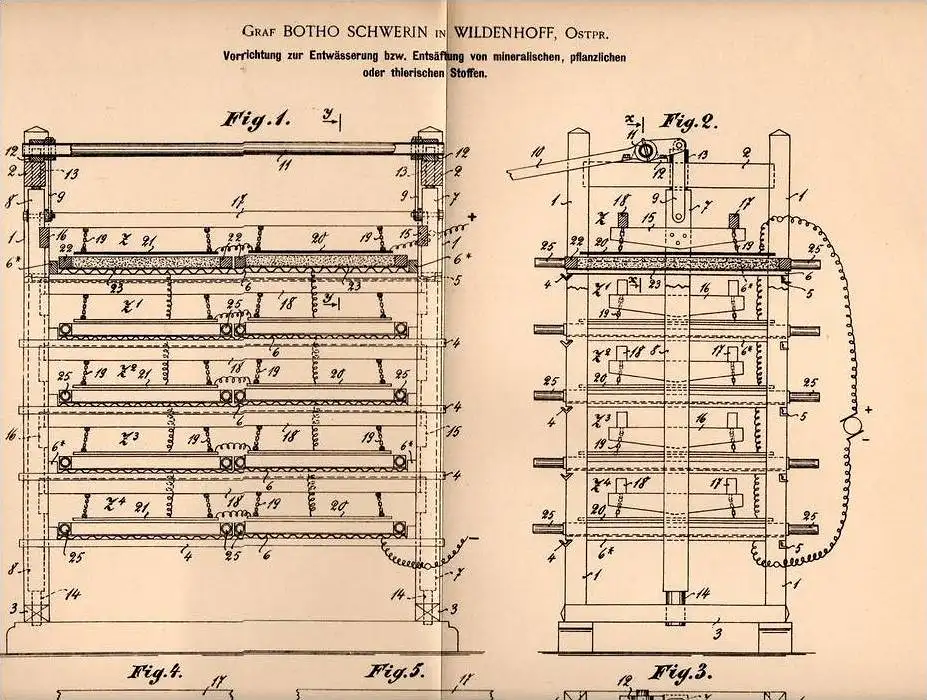 GRAF BOTHO SCHWERIN IN WILDENHOFF, OSTPR.
Vorrichtung zur Entwässerung bzw. Entsäftung von mineralischen, pflanzlichen
oder thierischen Stoffen.
Fig.1. y
12 13 11 13 12
2 2
8 9 9 7
17 +
1 16 19 Z 21 22 20 19 15 1
6* 22 6*
23 6 23 5
Z1 25 18 y
6 4
25 19 Z2 21 18 19 20 25
6 4
16 15
6* Z3 19 18 19 6*
6 4
Z4 21 18 19 20
25 4 25 6 −
8 7
14 14
3 3
Fig.2.
x 11
10 12 13 2
1 9 7 1
18 Z 15 17
25 22 20 19 25
4 23 6* 6
x 5
Z1 16 6*
19
4
Z2 18 8 17 6*
25 20 25
4 5
Z3 16
19 +
4 −
Z4 18 17
25 20 25
4 6* 5
1 1
14
3
Fig.4. Fig.5. Fig.3.
17 17 12